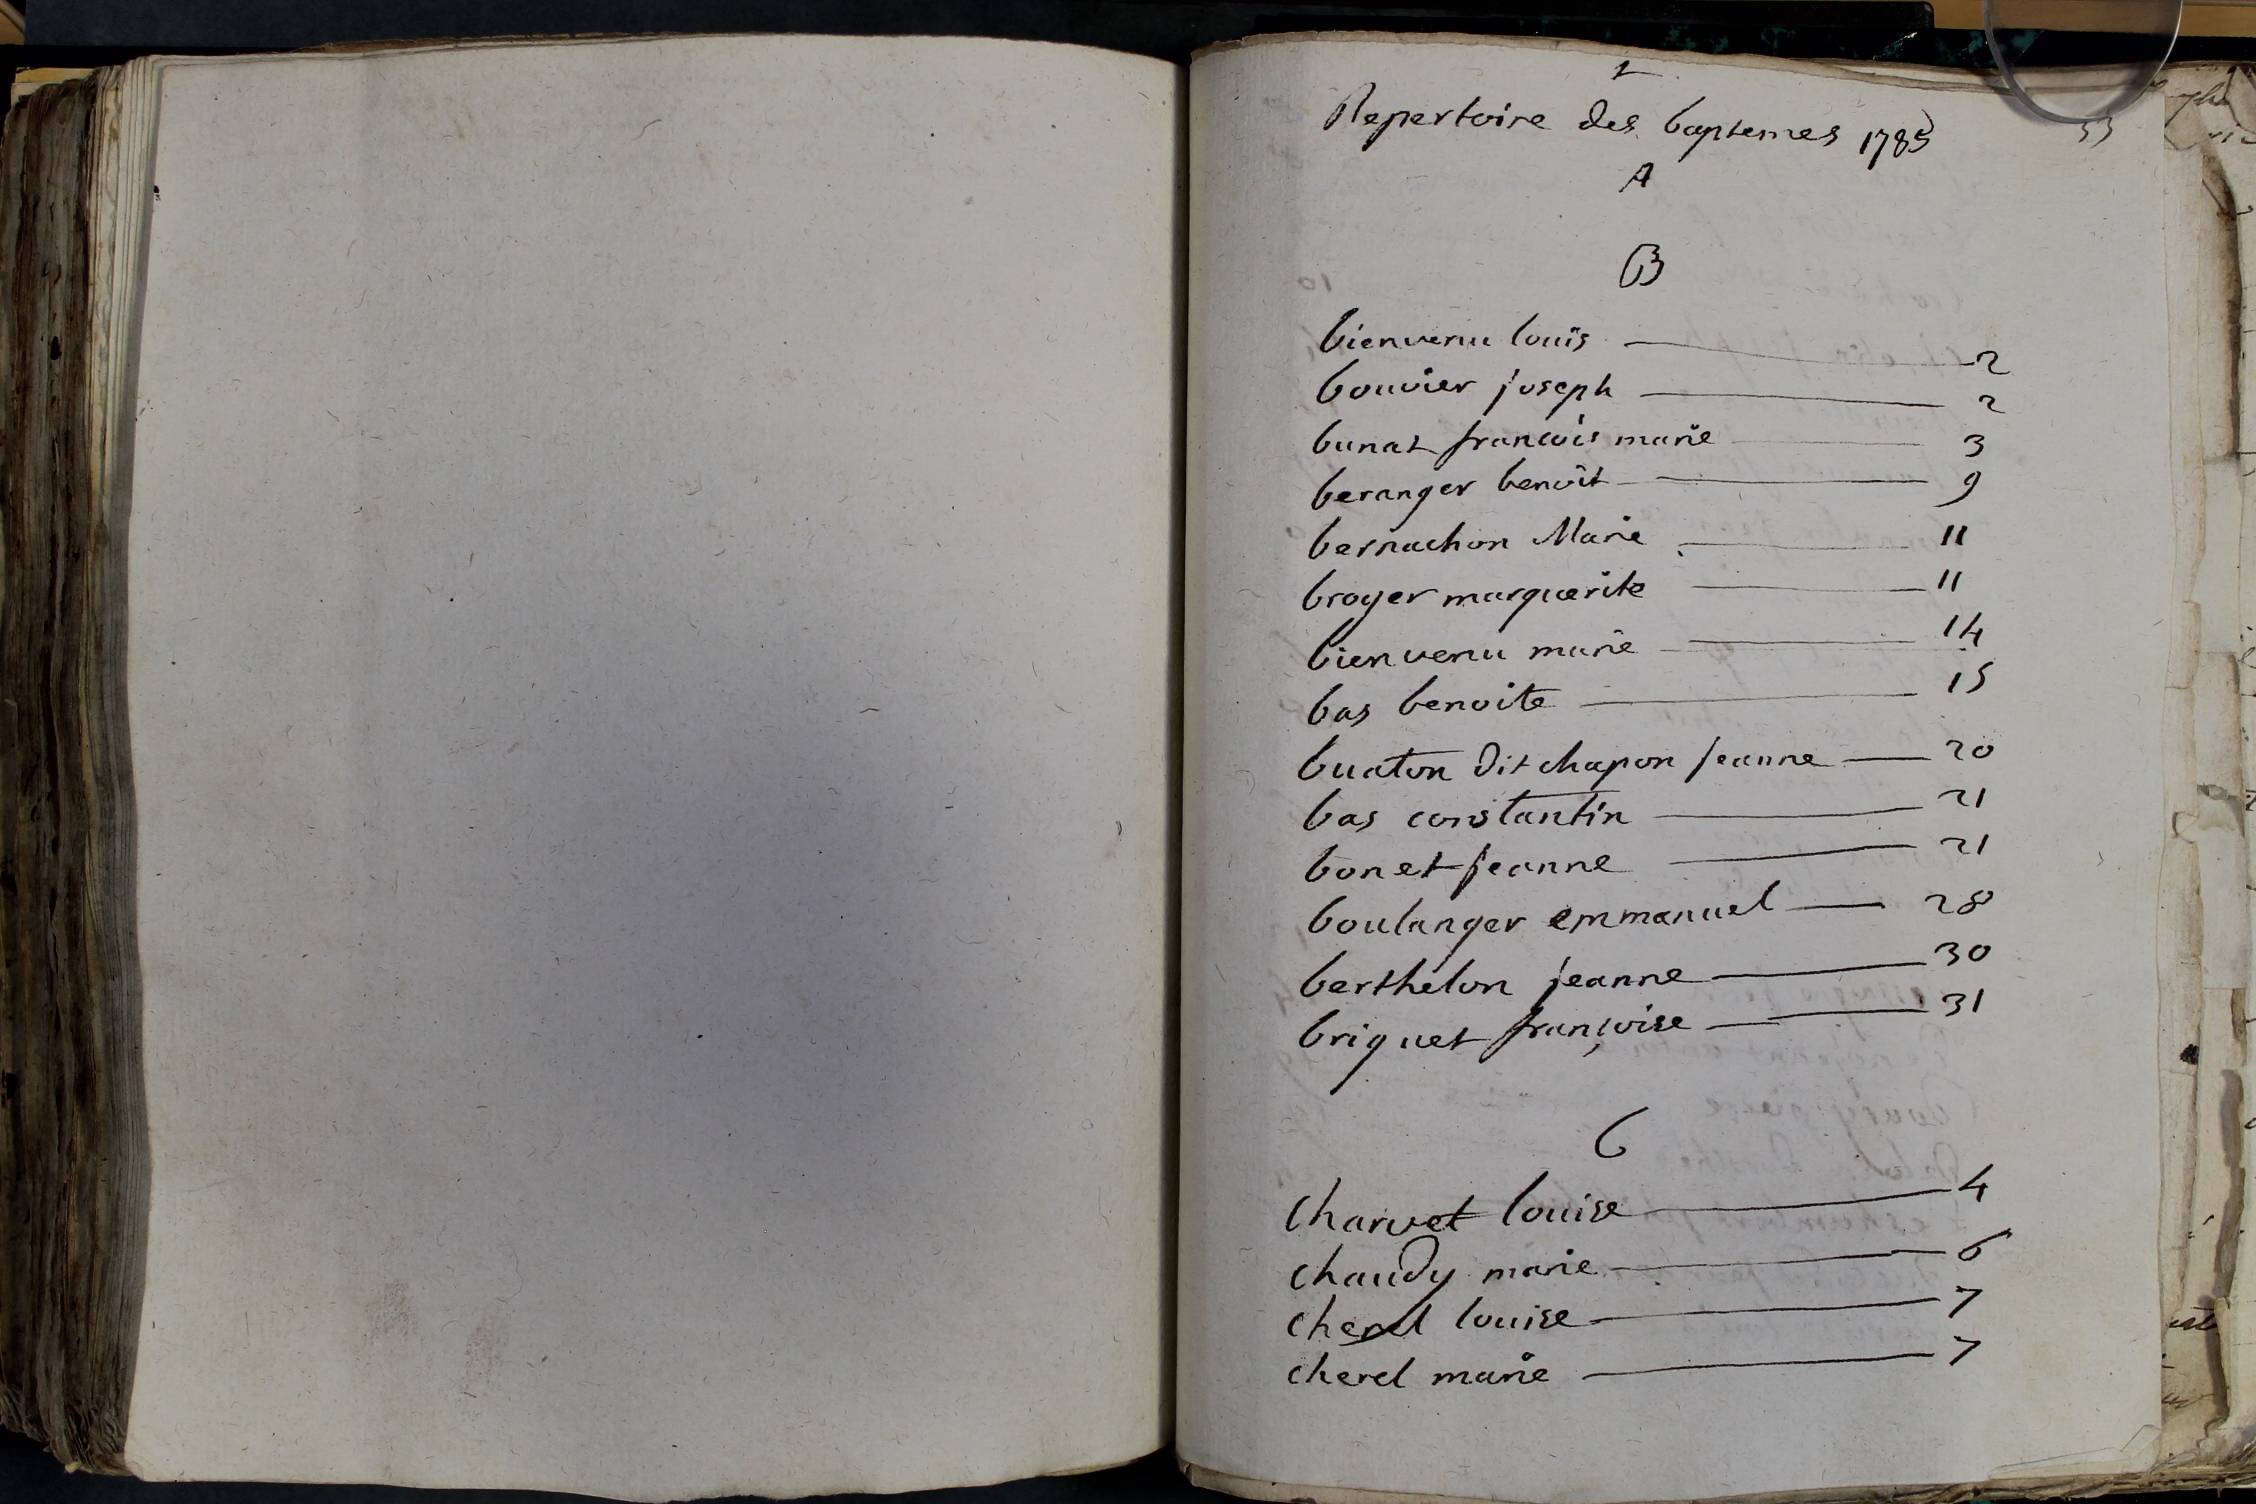 1
Repertoire des baptemes 1785
53
A
B
bienvenu louis 2
bouvier joseph 2
bunat francois marie 3
beranger benoit 9
bernachon Marie 11
broyer marguerite 11
bienvenu marie 14
bas benoite 15
buaton dit chapon jeanne 20
bas constantin 21
bonet jeanne 21
boulanger emmanuel 28
berthelon jeanne 30
briquet françoise 31
C
charvet louise 4
chaudy marie 6
cherel louise 7
cherel marie 7